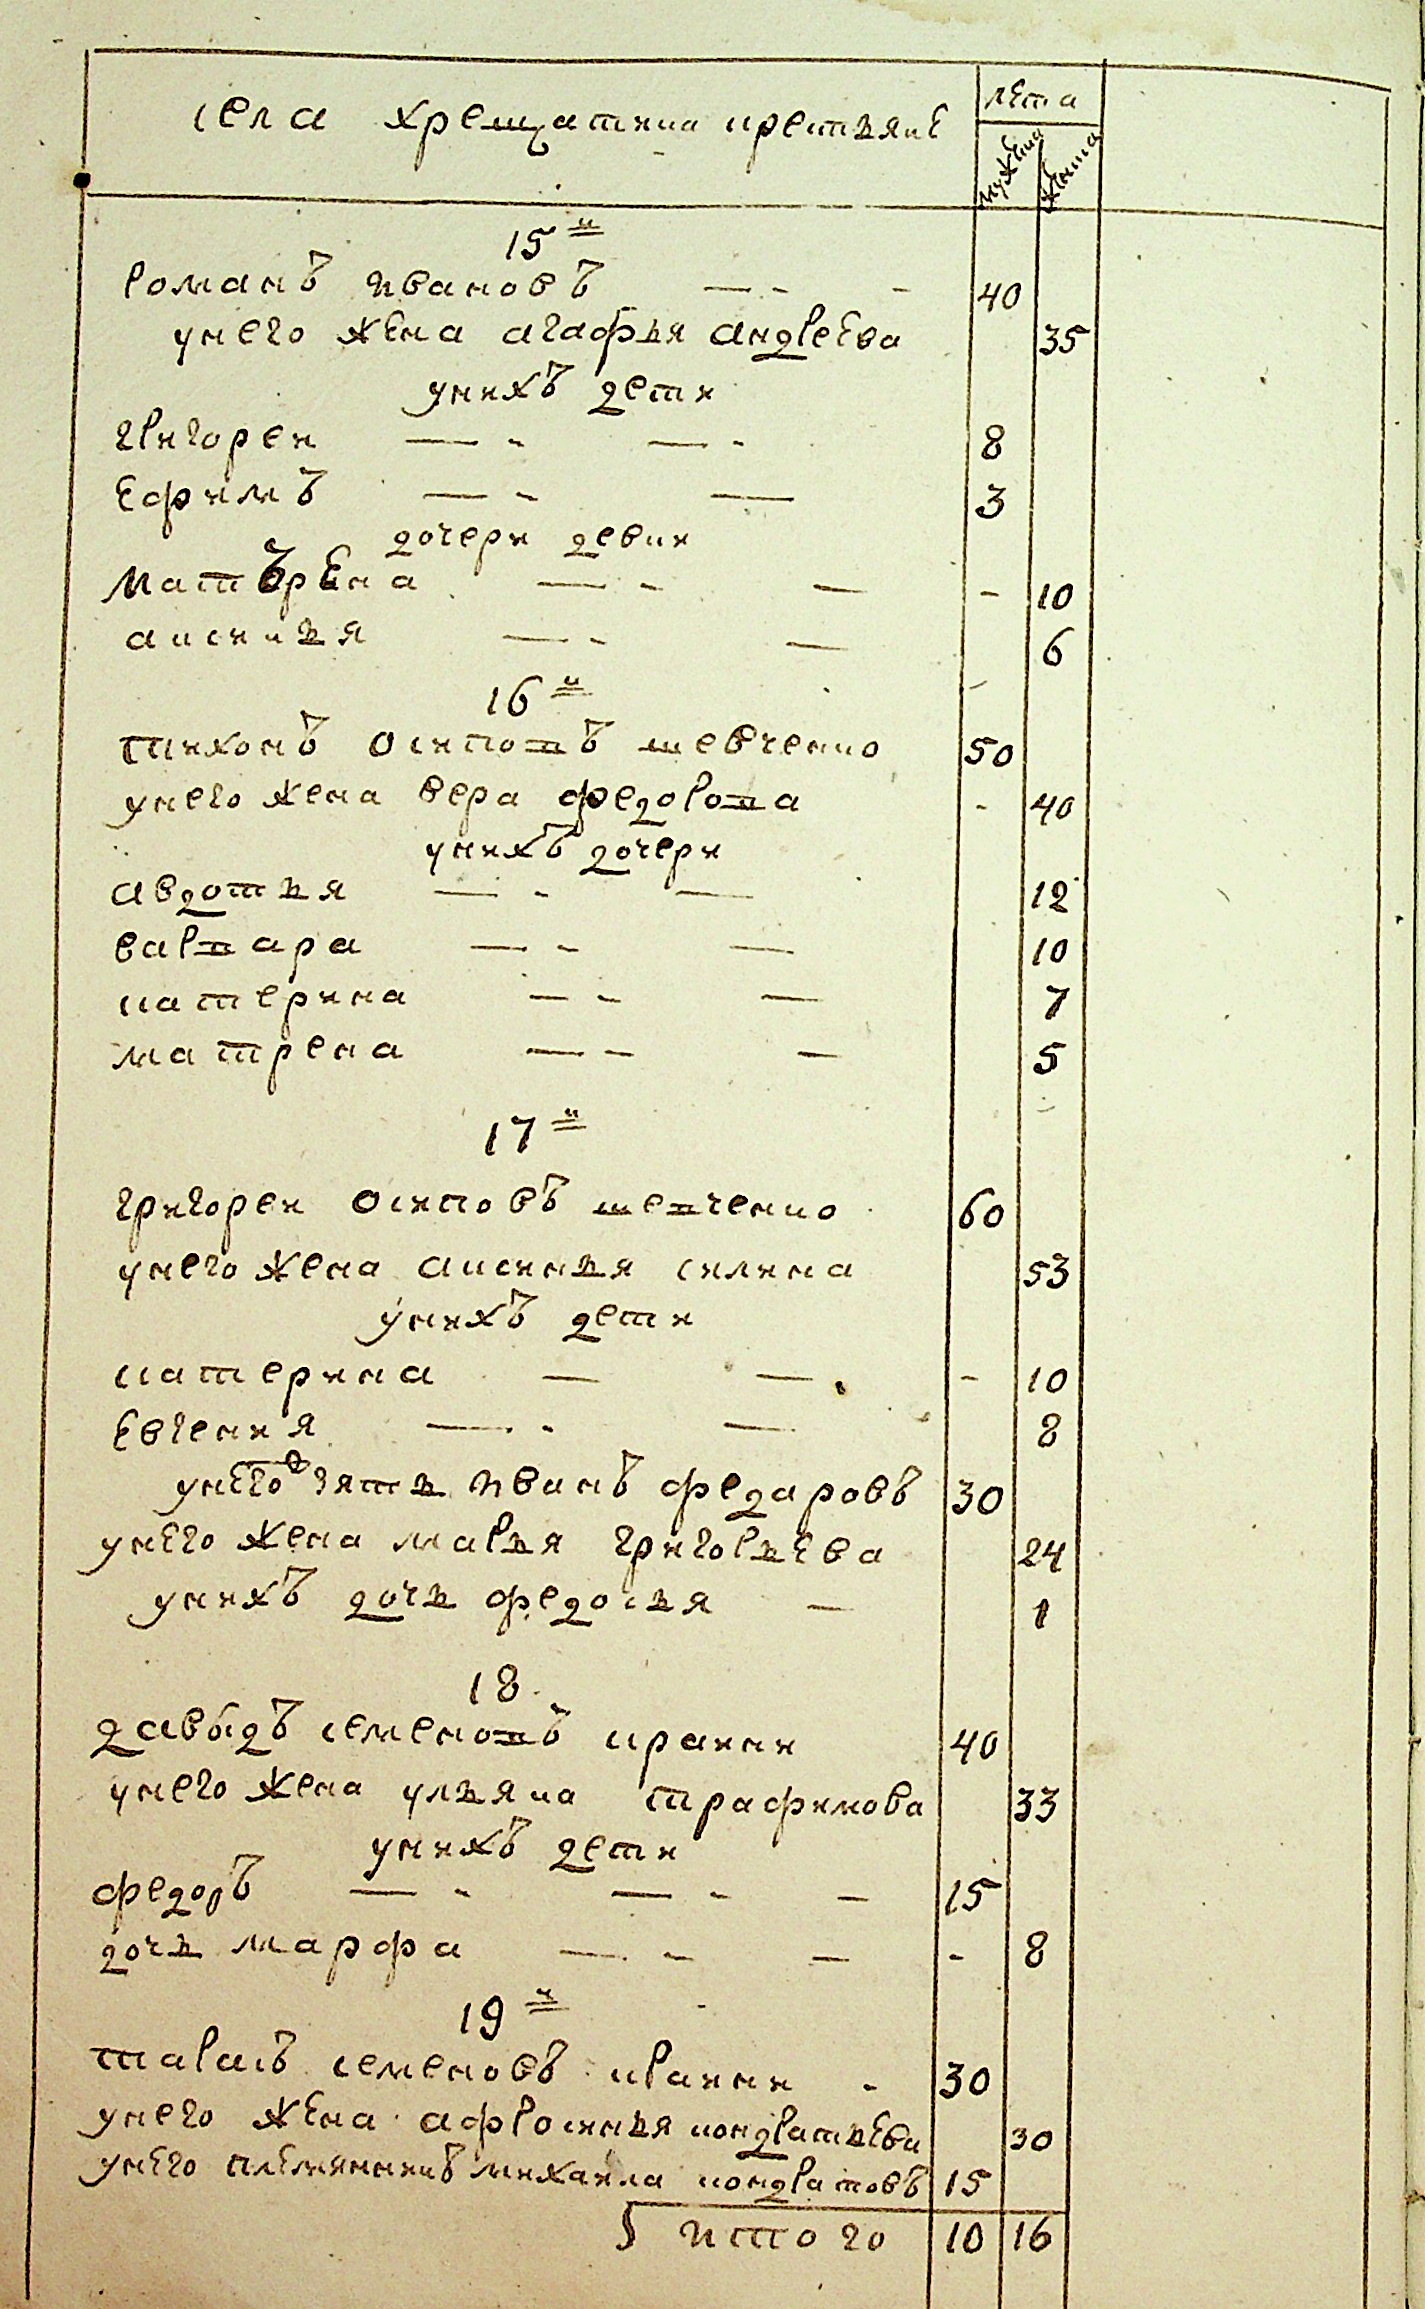 села хрещатика крестьяне
лета
мужска
женска
15 и
романъ ивановъ 40
унего жена агафья андреева 35
унихъ дети
григореи 8
ефимъ 3
дочери девки
матърена 10
аксинья 6
16 и
тихонъ осиповъ шевченко 50
унего жена вера федорова 40
унихъ дочери
авдотья 12
варвара 10
катерина 7
матрена 5
17 и
григореи осиповъ шевченко 60
унего жена аксинья силина 53
унихъ дети
катерина 10
евгения 8
унего зять иванъ федаровъ 30
унего жена марья григорьева 24
унихъ дочь федосья 1
18
давыдъ семеновъ кранин 40
унего жена ульяна трафимова 33
унихъ дети
федоръ 15
дочь марфа 8
19 и
тарасъ семеновъ кранин 30
унего жена афросинья кондратьева 30
унего племянникъ михаила кондратовъ 15
итого 10 16